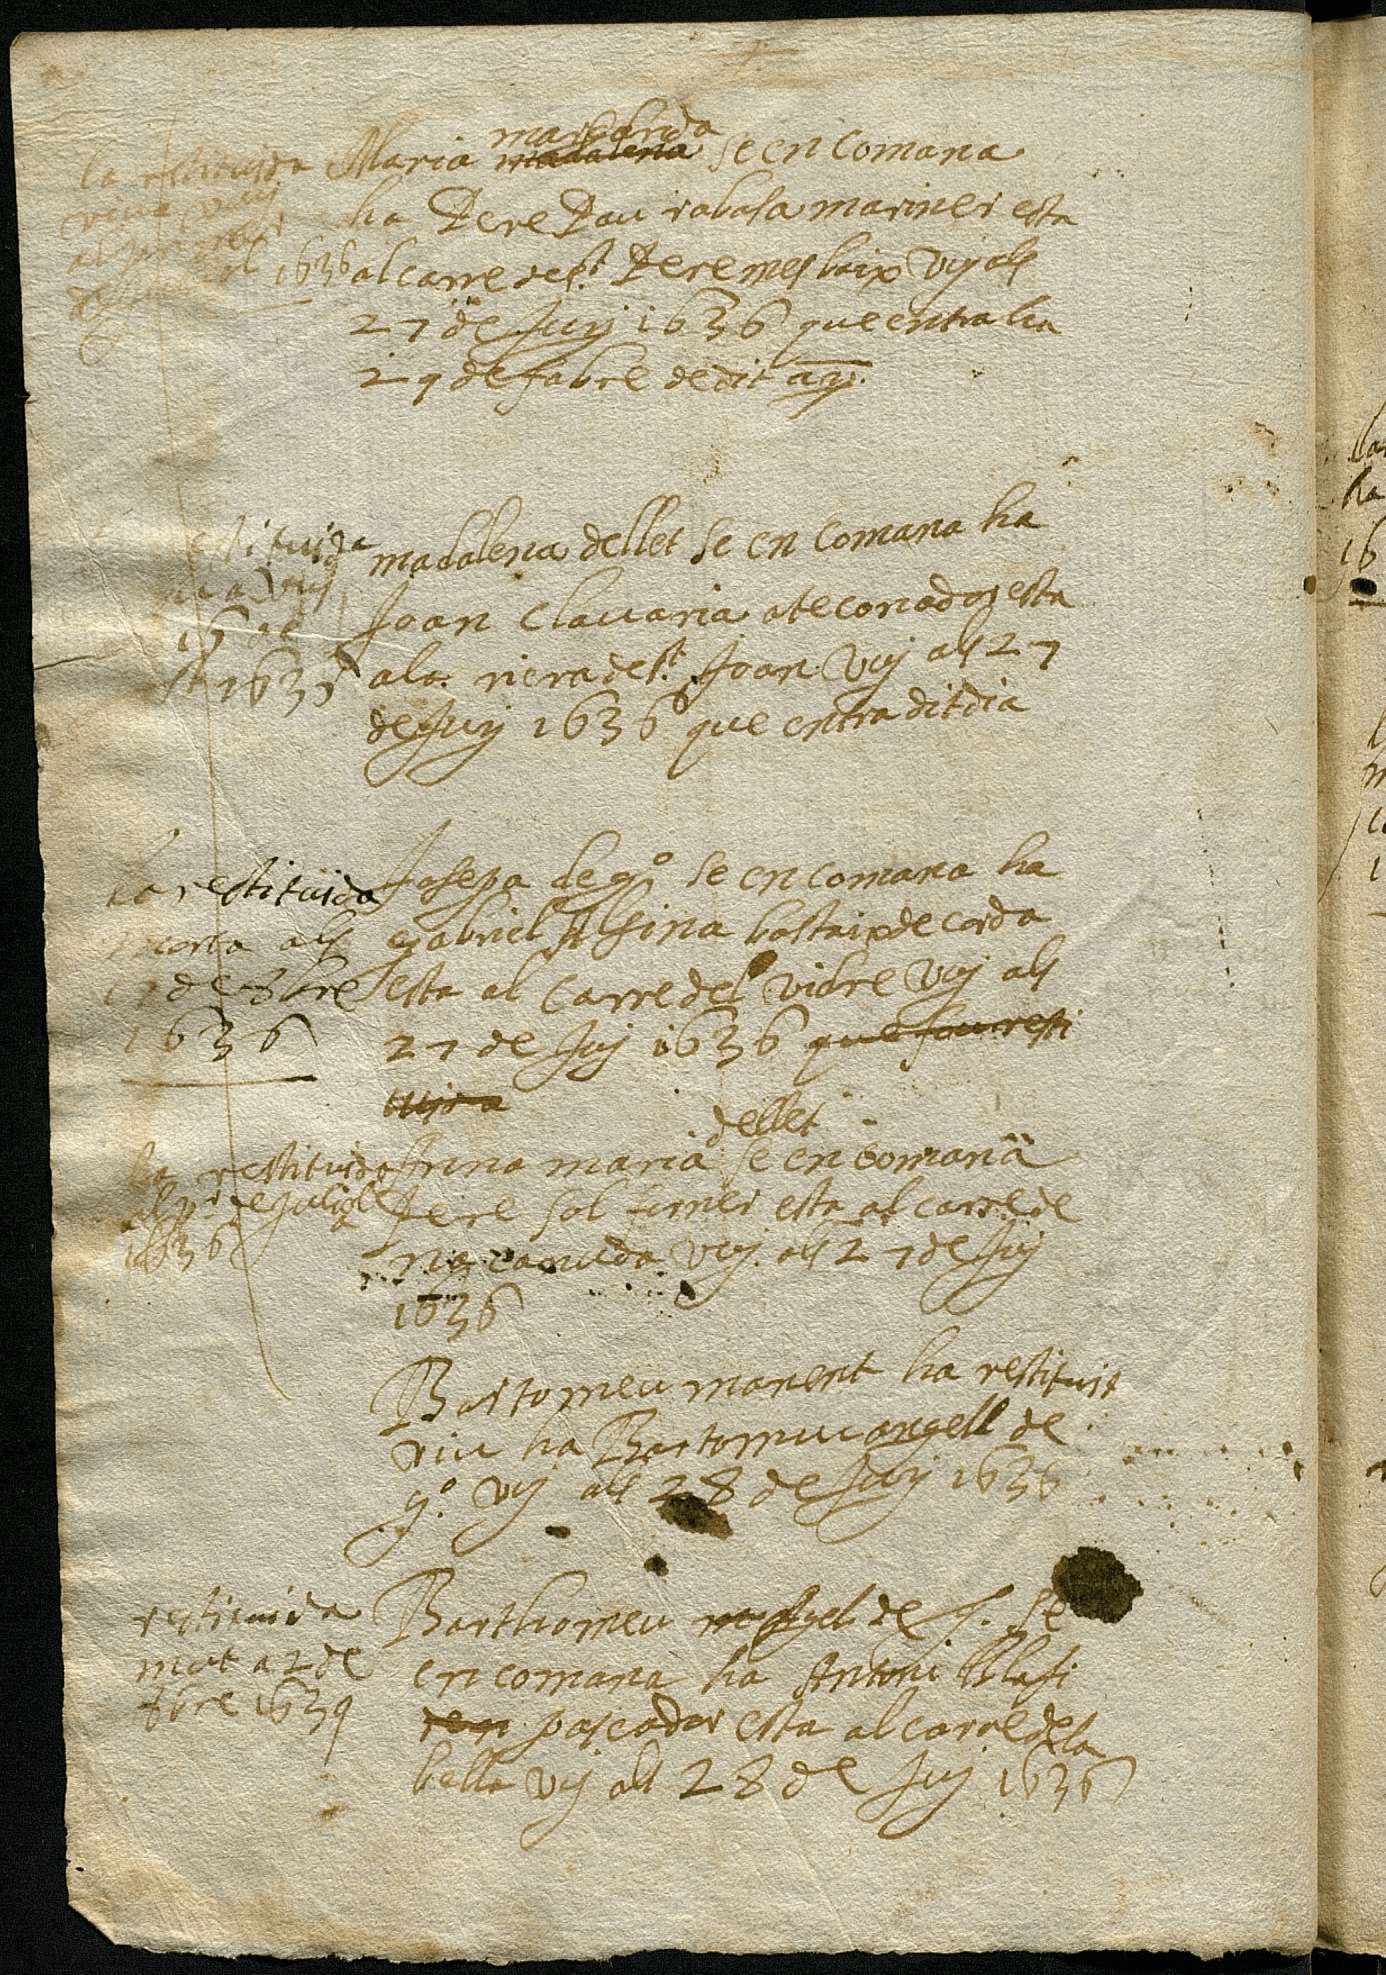 la restituida
viva vuy
al primer
de 1636
Maria margarida madalena se encomana
ha Pere Pau rabasa mariner esta
al carre de st. Pere mes baix vuy als
27 de Juny 1636 que entra ha
29 de fabre de dit ay.
restituida
vuy
1636
madalena dellet se encomana ha
Joan Clauaria ateconador esta
a la riera de st. Joan vuy als 27
de Juny 1636 que entra dit dia
la restituida
morta als
17 de 8bre
1636
Josepa de go. se encomana ha
gabriel Alsina bastaix de corda
esta al carre del vidre vuy als
27 de Juy 1636 que fou resti
tuyra
la restituida
als pr de Juliol
1636
Anna maria dellet se encomana a
Pere sol forner esta al carre de
na canuda vuy als 27 de Juy
1636
Bartomeu manent ha restituit
viu ha Bartomeu angell de
go. vuy als 28 de Juny 1636
restituida
mort a 2 de
1639
Barthomeu Angel de g. se
encomana ha Antoni Masi
ren pascador esta al carre de la
bella vuy als 28 de Juy 1636